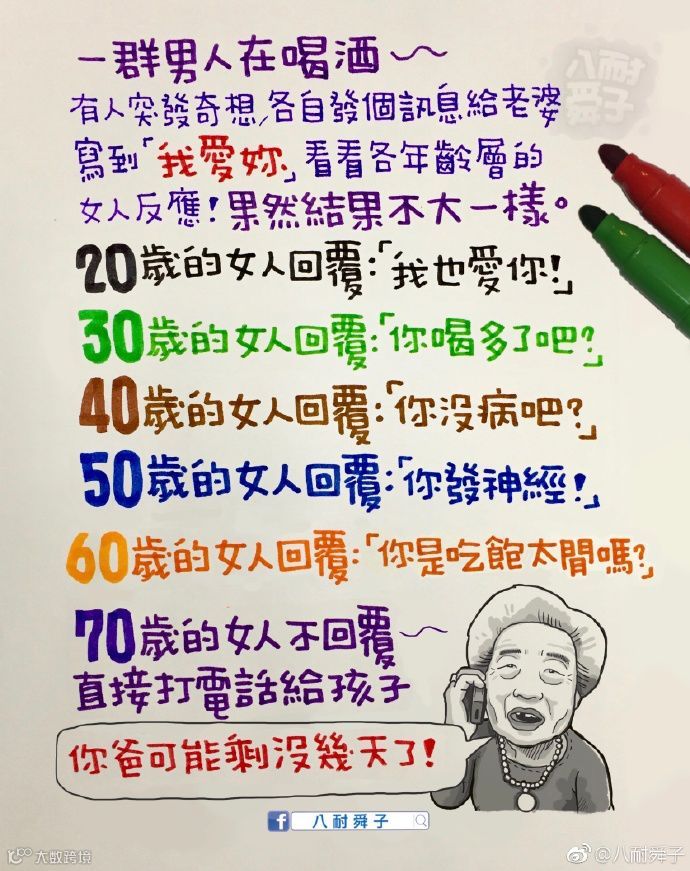 一群男人在喝酒~~
八耐
舜子
有人突發奇想,各自發個訊息給老婆
寫到「我愛妳」看看各年齡層的
女人反應!果然結果不大一樣。
20歲的女人回覆:「我也愛你!」
30歲的女人回覆:「你喝多了吧?」
40歲的女人回覆:「你沒病吧?」
50歲的女人回覆:「你發神經!」
60歲的女人回覆:「你是吃飽太閒嗎?」
70歲的女人不回覆~
直接打電話給孩子
你爸可能剩沒幾天了!
f 八耐舜子
大数跨境
@八耐舜子